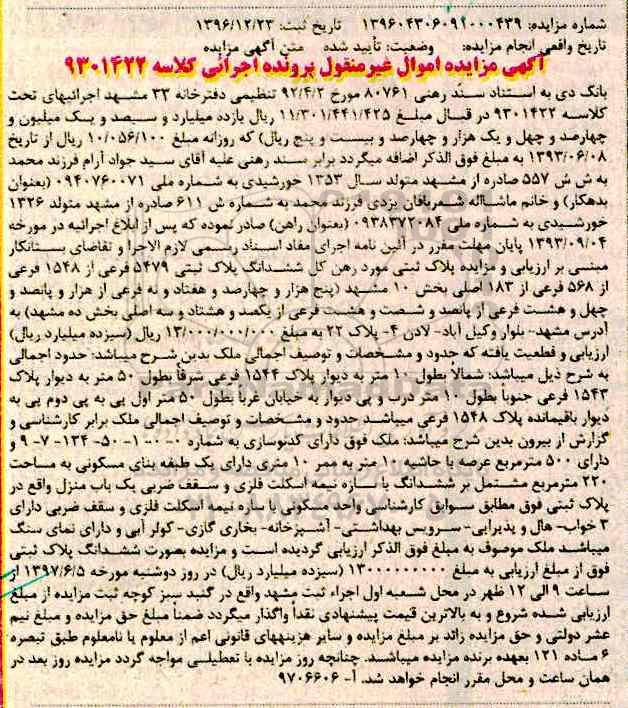 شماره مزایده: ۱۳۹۶۰۴۳۰۶۰۹۲۰۰۰۴۳۹ تاریخ ثبت: ۱۳۹۶/۱۲/۲۳
تاریخ واقعی انجام مزایده: وضعیت: تأیید شده متن آگهی مزایده
آگهی مزایده اموال غیرمنقول پرونده اجرائی کلاسه ۹۳۰۱۴۲۲
بانک دی به استناد سند رهنی ۸۰۷۶۱ مورخ ۹۲/۴/۲ تنظیمی دفترخانه ۳۳ مشهد اجرائیهای تحت
کلاسه ۹۳۰۱۴۲۲ در قبال مبلغ ۱۱/۳۰۱/۴۴۱/۴۲۵ ریال یازده میلیارد و سیصد و یک میلیون و
چهارصد و چهل و یک هزار و چهارصد و بیست و پنج ریال) که روزانه مبلغ ۱۰/۰۵۶/۱۰۰ ریال از تاریخ
۱۳۹۳/۰۶/۰۸ به مبلغ فوق الذکر اضافه میگردد برابر سند رهنی علیه آقای سید جواد آرام فرزند محمد
به ش ش ۵۵۷ صادره از مشهد متولد سال ۱۳۵۳ خورشیدی به شماره ملی ۰۹۴۰۷۶۰۰۷۱ (بعنوان
بدهکار) و خانم ماشااله شعربافان یزدی فرزند محمد به شماره ش ۶۱۱ صادره از مشهد متولد ۱۳۲۶
خورشیدی به شماره ملی ۰۹۳۸۳۷۲۰۸۴ (بعنوان راهن) صادر نموده که پس از ابلاغ اجرائیه در مورخه
۱۳۹۳/۰۹/۰۴ پایان مهلت مقرر در آئین نامه اجرای مفاد اسناد رسمی لازم الاجرا و تقاضای بستانکار
مبنی بر ارزیابی و مزایده پلاک ثبتی مورد رهن کل ششدانگ پلاک ثبتی ۵۴۷۹ فرعی از ۱۵۴۸ فرعی
از ۵۶۸ فرعی از ۱۸۳ اصلی بخش ۱۰ مشهد (پنج هزار و چهارصد و هفتاد و نه فرعی از هزار و پانصد و
چهل و هشت فرعی از پانصد و شصت و هشت فرعی از یکصد و هشتاد و سه اصلی بخش ده مشهد) به
آدرس مشهد- بلوار وکیل آباد- لادن ۴- پلاک ۲۲ به مبلغ ۱۳/۰۰۰/۰۰۰/۰۰۰ ریال (سیزده میلیارد ریال)
ارزیابی و قطعیت یافته که حدود و مشخصات و توصیف اجمالی ملک بدین شرح میباشد: حدود اجمالی
به شرح ذیل میباشد: شمالاً بطول ۱۰ متر به دیوار پلاک ۱۵۴۴ فرعی شرقاً بطول ۵۰ متر به دیوار پلاک
۱۵۴۳ فرعی جنوباً بطول ۱۰ متر درب و پی دیوار به خیابان غرباً بطول ۵۰ متر اول پی به پی دوم پی به
دیوار باقیمانده پلاک ۱۵۴۸ فرعی میباشد حدود و مشخصات و توصیف اجمالی ملک برابر کارشناسی و
گزارش از بیرون بدین شرح میباشد: ملک فوق دارای کدنوسازی به شماره ۰-۰-۰-۱-۵۰-۱۳۴-۷-۹ و
دارای ۵۰۰ مترمربع عرصه با حاشیه ۱۰ متر به ممر ۱۰ متری دارای یک طبقه بنای مسکونی به مساحت
۲۲۰ مترمربع مشتمل بر ششدانگ با سازه نیمه اسکلت فلزی و سقف ضربی یک باب منزل واقع در
پلاک ثبتی فوق مطابق سوابق کارشناسی واحد مسکونی با سازه نیمه اسکلت فلزی و سقف ضربی دارای
۳ خواب- هال و پذیرایی- سرویس بهداشتی- آشپزخانه- بخاری گازی- کولر آبی و دارای نمای سنگ
میباشد ملک موصوف به مبلغ فوق الذکر ارزیابی گردیده است و مزایده بصورت ششدانگ پلاک ثبتی
فوق از مبلغ ارزیابی به مبلغ ۱۳۰۰۰۰۰۰۰۰۰ (سیزده میلیارد ریال) در روز دوشنبه مورخه ۱۳۹۷/۶/۵ از
ساعت ۹ الی ۱۲ ظهر در محل شعبه اول اجراء ثبت مشهد واقع در گنبد سبز کوچه ثبت مزایده از مبلغ
ارزیابی شده شروع و به بالاترین قیمت پیشنهادی نقداً واگذار میگردد ضمناً مبلغ حق مزایده و مبلغ نیم
عشر دولتی و حق مزایده زائد بر مبلغ مزایده و سایر هزینههای قانونی اعم از معلوم یا نامعلوم طبق تبصره
۶ ماده ۱۲۱ بعهده برنده مزایده میباشد. چنانچه روز مزایده با تعطیلی مواجه گردد مزایده روز بعد در
همان ساعت و محل مقرر انجام خواهد شد. آ- ۹۷۰۶۶۰۶